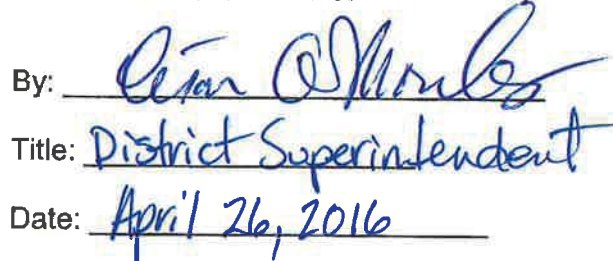 By:
Title: District Superintendent
Date: April 26, 2016